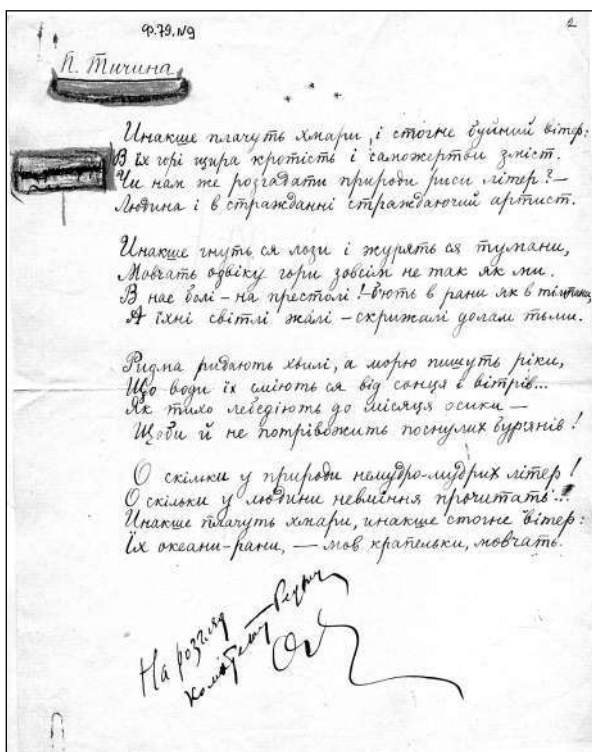 Ф.79.N9
2
П. Тичина
* * *
Инакше плачуть хмари, і стогне буйний вітер:
В їх горі щира кротість і саможертви зміст.
Чи нам же розгадати природи риси літер? —
Людина і в стражданні страждаючий артист.
Инакше гнуть ся лози і журять ся тумани,
Мовчать одвіку гори зовсім не так як ми.
В нас болі – на престолі! – бють в рани як в тімпани,
А їхні світлі жалі – скрижалі долам тьми.
Ридма ридають хвилі, а морю пишуть ріки,
Що води їх сміють ся від сонця і вітрів...
Як тихо лебедіють до місяця осики —
Щоби й не потрівожить поснулих бурянів!
О скільки у природи немудро-мудрих літер!
О скільки у людини невміння прочитать...
Инакше плачуть хмари, инакше стогне вітер:
Їх океани-рани, — мов крапельки, мовчать.
На розгляд